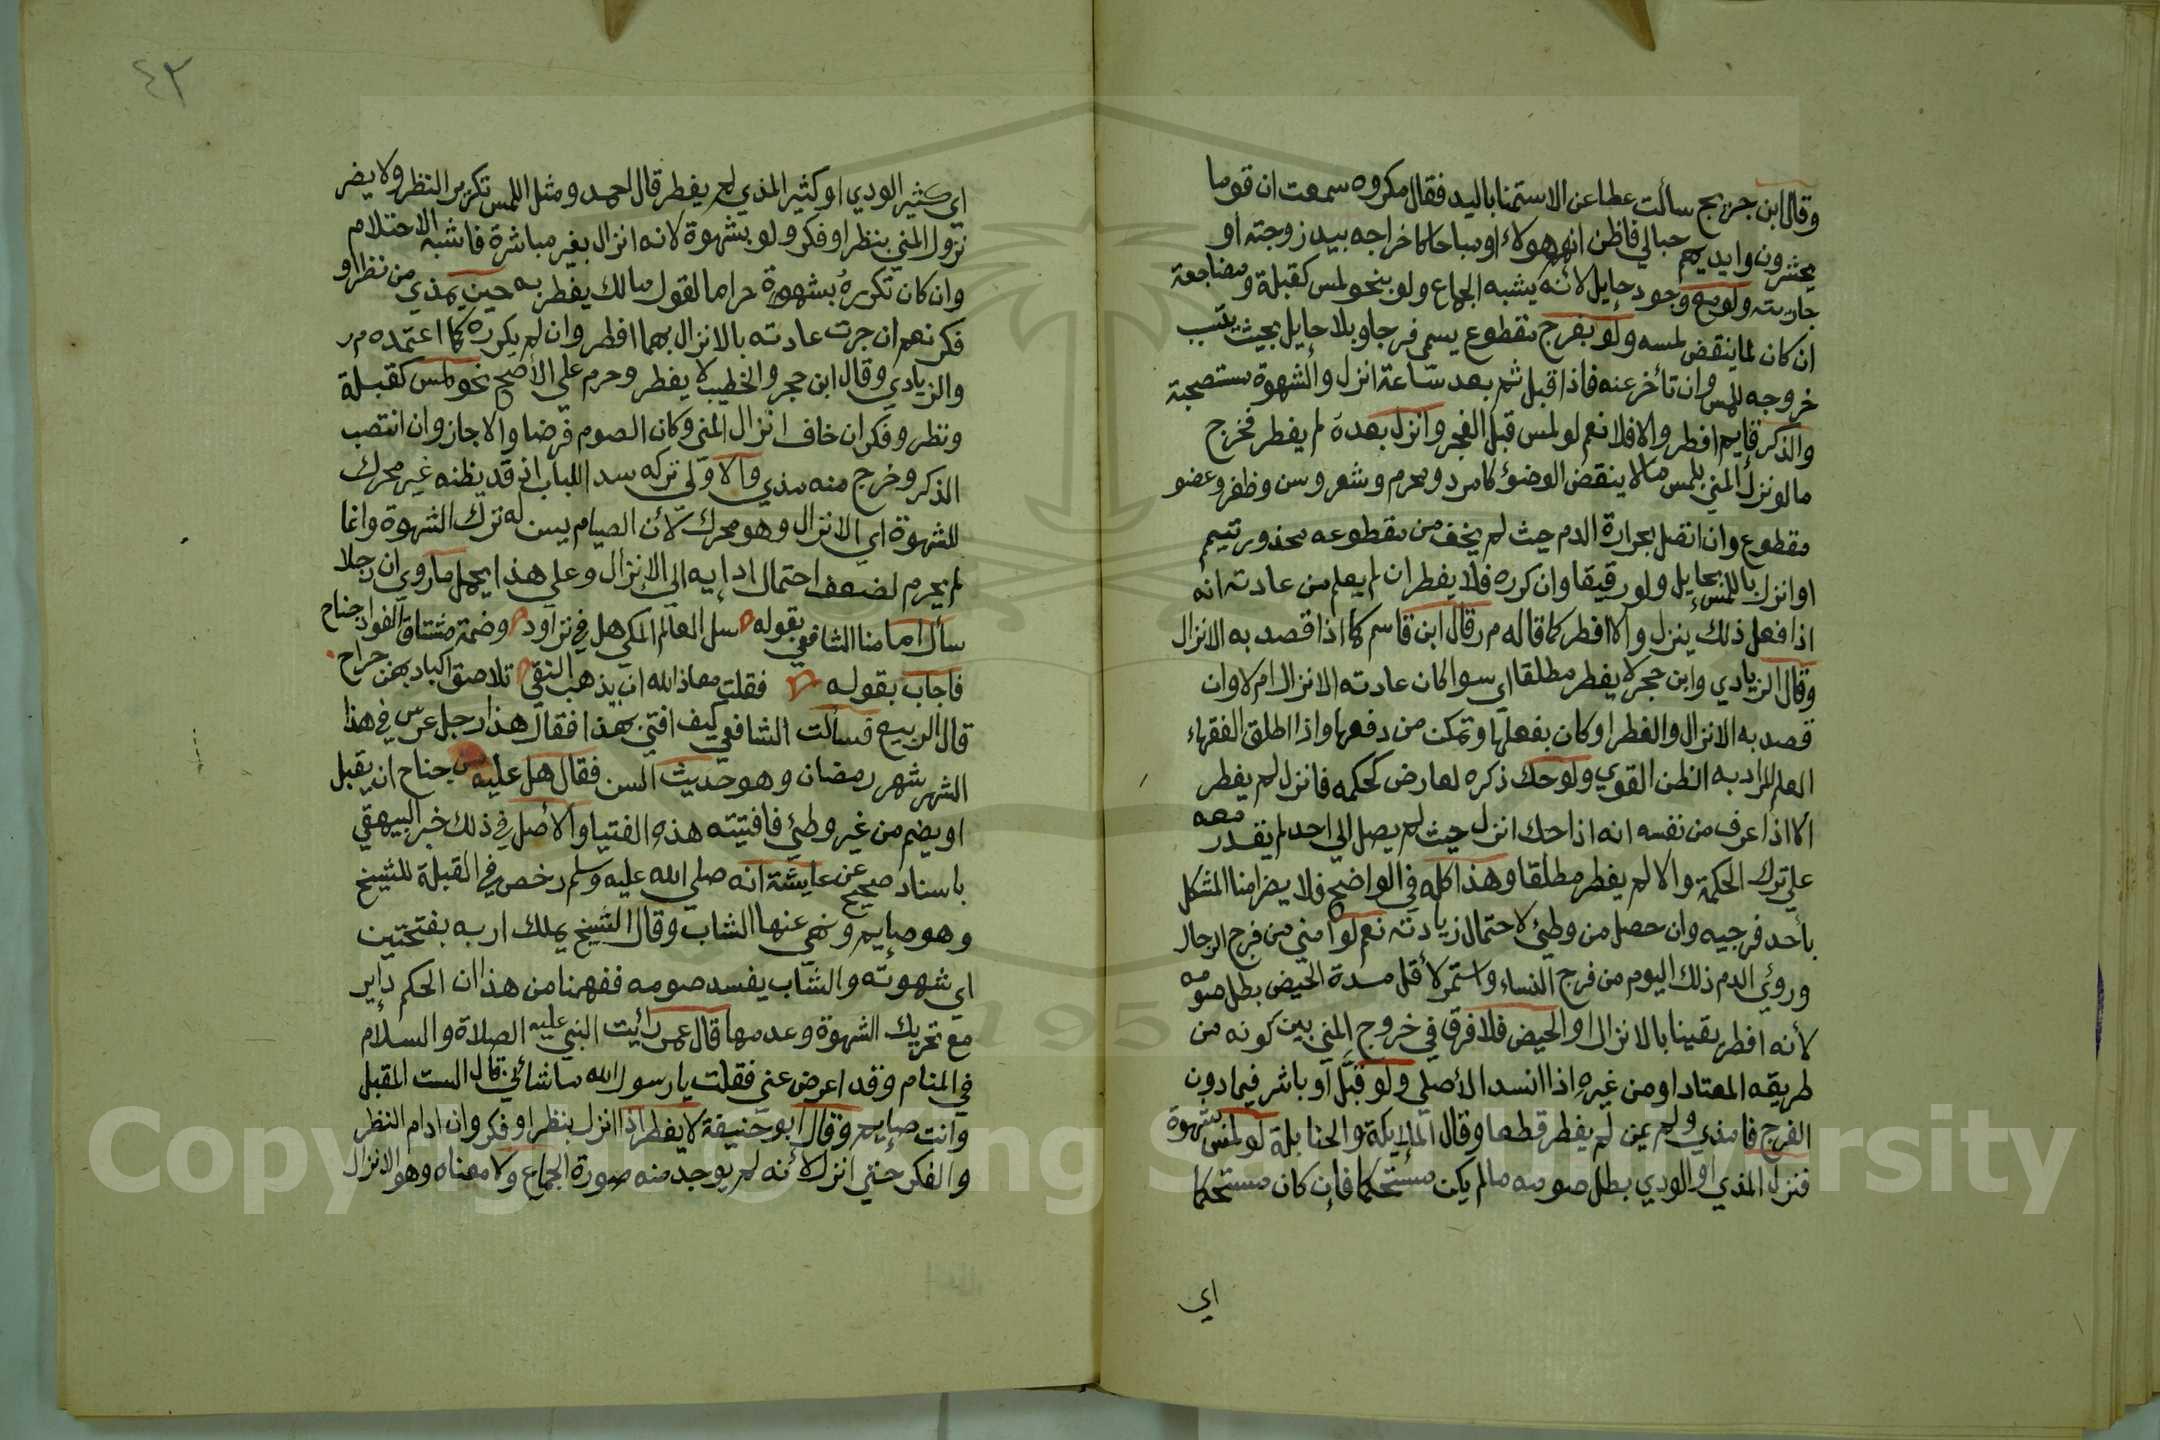 وقال ابن جريج سألت عطا عن الاستمنا باليد فقال مكروه سمعت ان قوما
يحشرون وايديهم حبالي فاظن انهم هولاء او مباحا كاخراجه بيد زوجته او
جاريته ولو مع وجود حايل لأنه يشبه الجماع ولو بنحو لمس كقبلة ومضاجعة
ان كان لما ينقض لمسه ولو بفرج مقطوع يسمى فرجا وبلا حايل بحيث ينسب
خروجه للمس وان تأخر عنه فاذا قبل ثم بعد ساعة انزل والشهوة مستصحبة
والذكر قايم افطر والا فلا نعم لو لمس قبل الفجر وانزل بعده لم يفطر فخرج
مالو نزل المني بلمس مالا ينقض الوضؤ كامرد ومحرم وشعر وسن وظفر وعضو
مقطوع وان اتصل بحرارة الدم حيث لم يخف من مقطوعه محذور تيمم
او انزل باللمس بحايل ولو رقيقا وان كرره فلا يفطر ان لم يعلم من عادته انه
اذا فعل ذلك ينزل والا افطر كما قاله م ر قال ابن قاسم كما اذا قصد به الانزال
وقال الزيادي وابن حجر لا يفطر مطلقا اي سوا كان عادته الانزال ام لا وان
قصد به الانزال والفطر او كان بفعلها وتمكن من دفعها واذا اطلق الفقهاء
العلم المراد به الظن القوي ولو حك ذكره لعارض كحكمه فانزل لم يفطر
الا اذا عرف من نفسه انه اذا حك انزل حيث لم يصل الي احد لم يقدر معه
علي ترك الحكمة والا لم يفطر مطلقا وهذا كله في الواضح فلا يضر امنا المشكل
بأحد فرجيه وان حصل من وطئ لاحتمال زيادته نعم لو امني من فرج الرجال
وروي الدم ذلك اليوم من فرج النساء واستمر لأقل مدة الحيض بطل صومه
لأنه افطر يقينا بالانزال او الحيض فلا فرق في خروج المني بين كونه من
طريقه المعتاد او من غيره اذا انسد الأصلي ولو قبّل او باشر فيما دون
الفرج فامذي ولم يمن لم يفطر قطعا وقال المالكية والحنابلة لو لمس بشهوة
فنزل المذي او الودي بطل صومه مالم يكن مستحكما فإن كان مستحكما
اي
٤٣
اي كثير الودي او كثير المذي لم يفطر قال احمد ومثل اللمس تكرير النظر ولا يضر
نزول المني بنظر او فكر ولو بشهوة لانه انزال بغير مباشرة فاشبه الاحتلام
وان كان تكرره بشهوة حراما لقول مالك يفطر به حين يمذي من نظر او
فكر نعم ان جرت عادته بالانزال بهما افطر وان لم يكرره كما اعتمده م ر
والزيادي وقال ابن حجر والخطيب لا يفطر وحرم علي الأصح نحو لمس كقبلة
ونظر وفكر ان خاف انزال المني وكان الصوم فرضا والا جاز وان انتصب
الذكر وخرج منه مذي والاولى تركه سدا للباب اذ قد يظنه غير محرك
للشهوة اي الانزال وهو محرك لأن الصيام يسن له ترك الشهوة وانما
لم يحرم لضعف احتمال ادايه الى الانزال وعلي هذا يحمل ماروي ان رجلا
سأل امامنا الشافعي بقوله سل العالم المكي هل في تزاود وضمة مشتاق الفواد جناح
فاجاب بقوله فقلت معاذ الله ان يذهب النقى تلاصق اكباد بهن جراح
قال الربيع فسألت الشافعي كيف افتي بهذا فقال هذا رجل عرس في هذا
الشهر شهر رمضان وهو حديث السن فقال هل عليه من جناح ان يقبل
او يضم من غير وطئ فافتيته هذه الفتيا والأصل في ذلك خبر البيهقي
باسناد صحيح عن عايشة انه صلي الله عليه وسلم رخص في القبلة للشيخ
وهو صايم ونهي عنها الشاب وقال الشيخ يملك اربه بفتحتين
اي شهوته والشاب يفسد صومه ففهمنا من هذا ان الحكم داير
مع تحريك الشهوة وعدمها قال عمر رائيت النبي عليه الصلاة والسلام
في المنام وقد اعرض عني فقلت يا رسول الله ما شائي قال الست المقبل
وانت صايم وقال ابو حنيفة لا يفطر اذا انزل بنظر او فكر وان ادام النظر
والفكر حتي انزل لأنه لم يوجد منه صورة الجماع ولا معناه وهو الانزال
Copyright © King Saud University
195